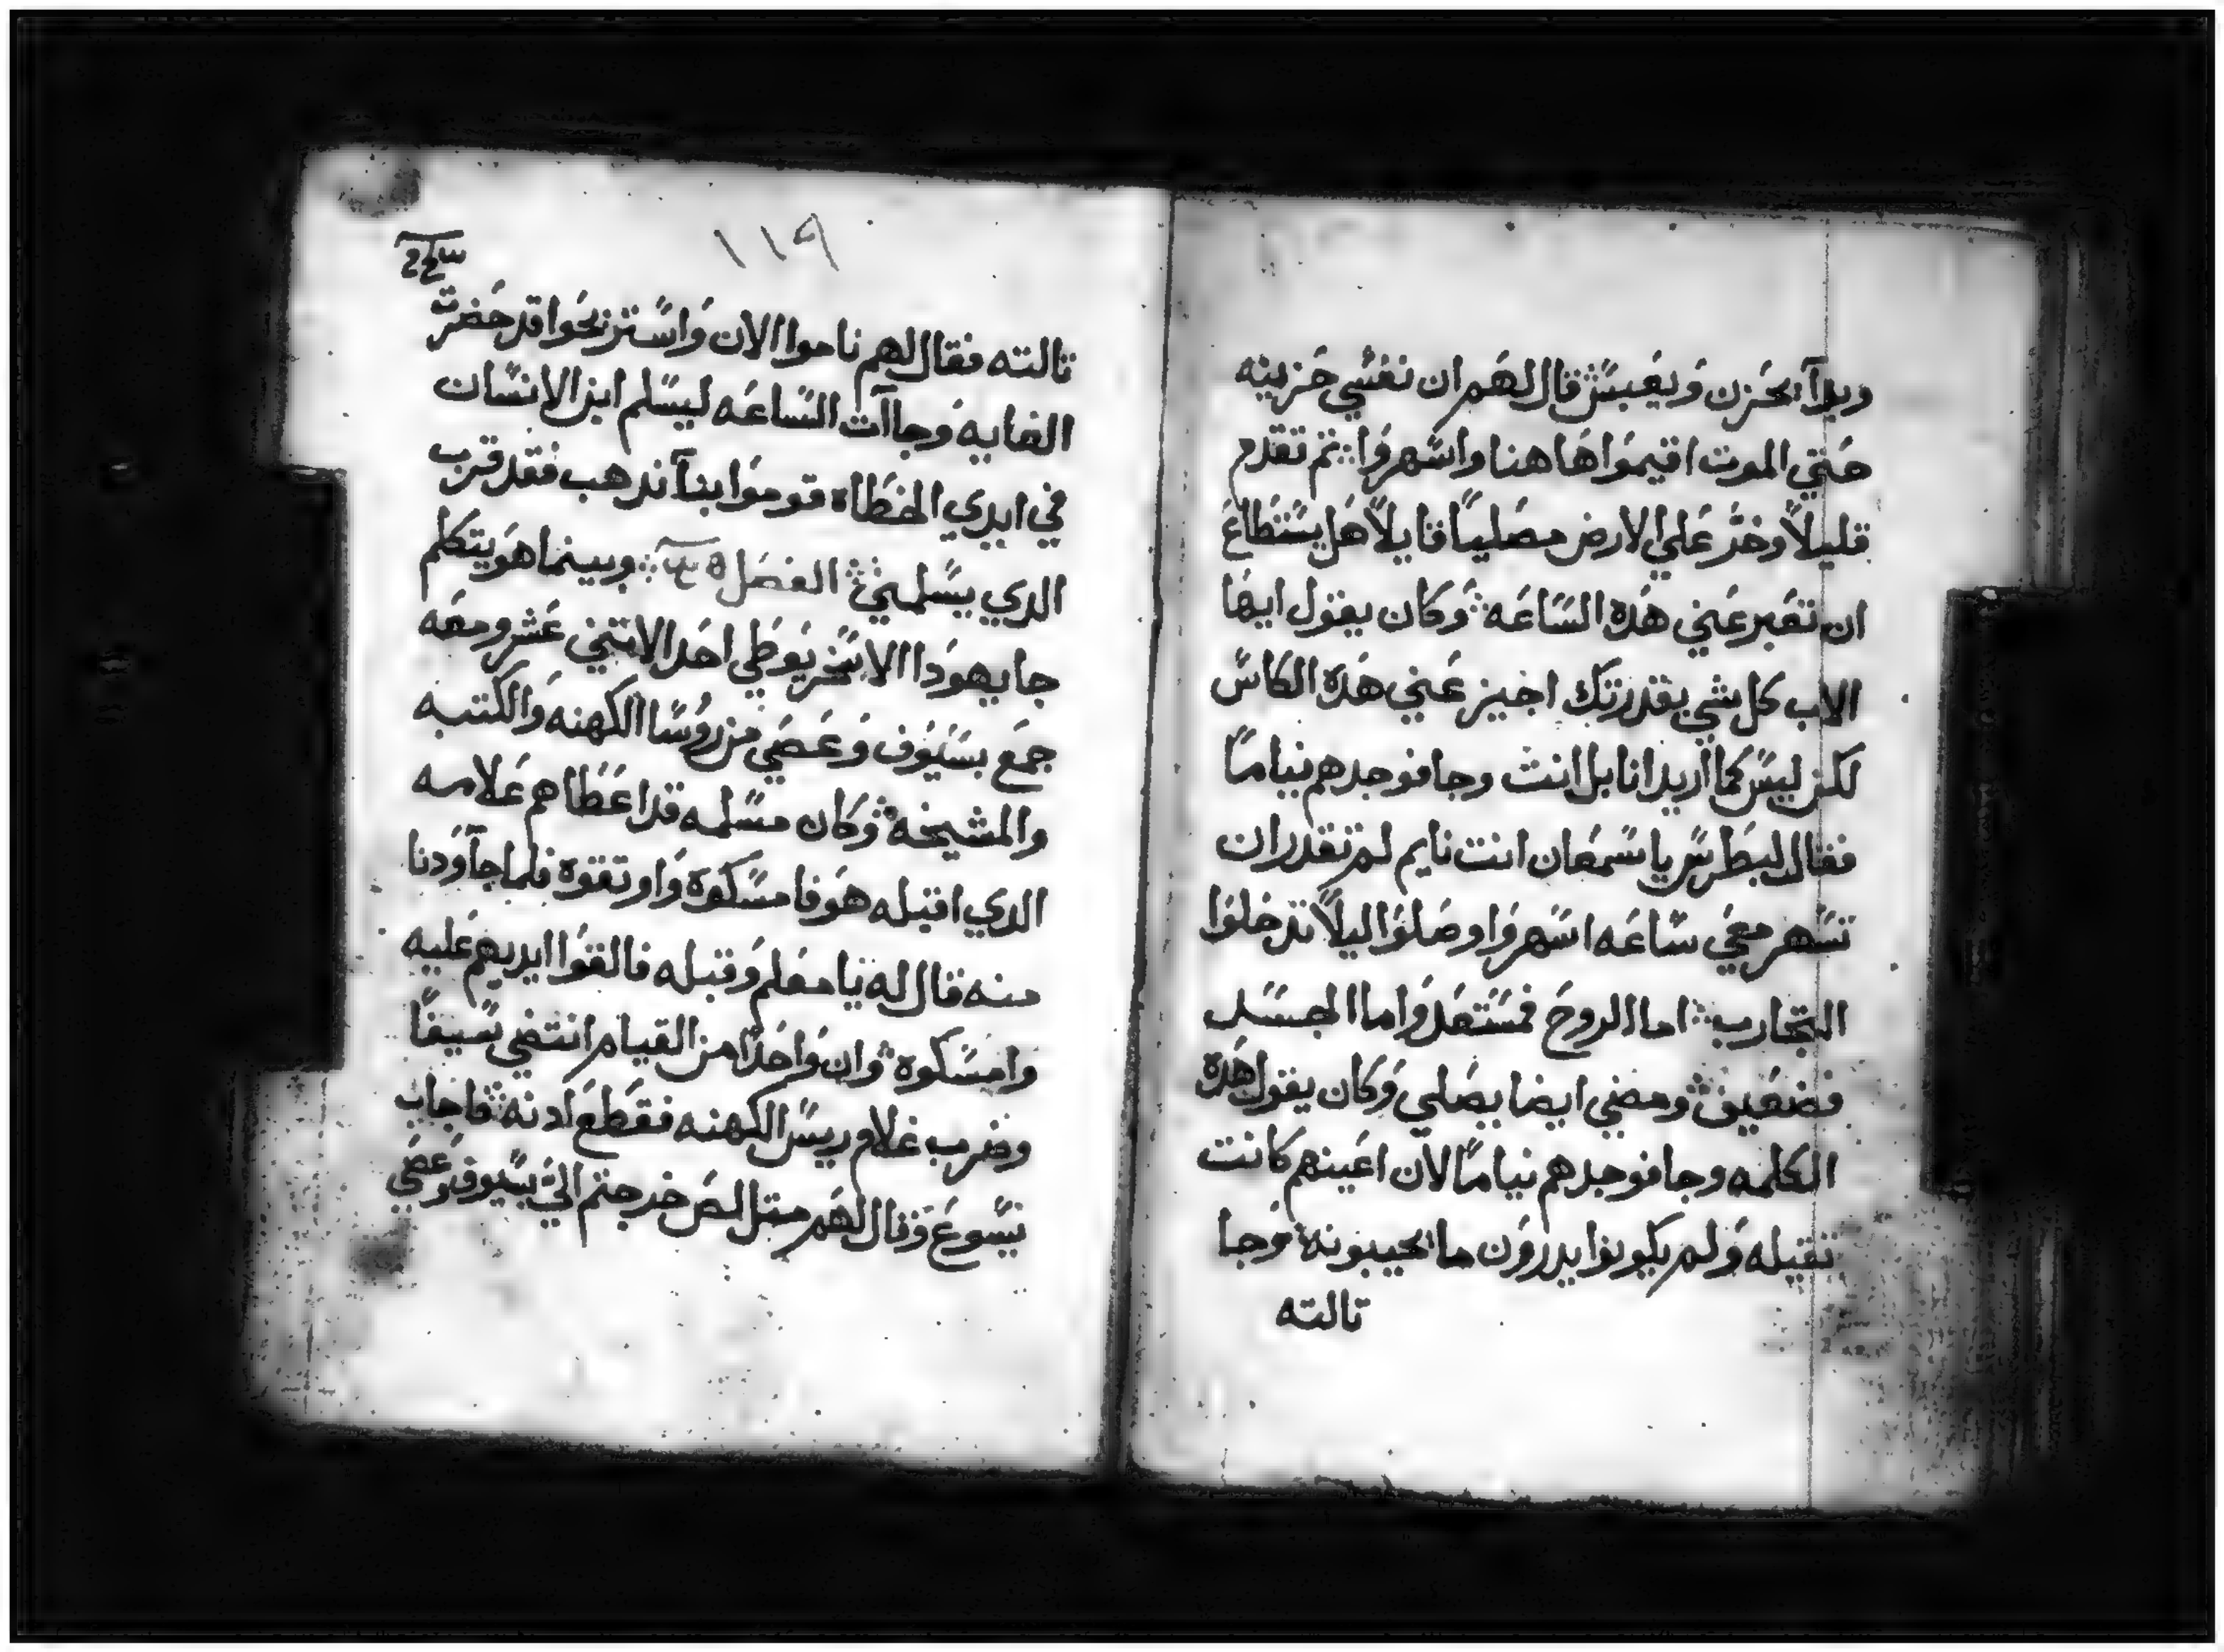 وبدآ يحزن ويعبس قال لهم ان نفسي حزينه
حتي الموت اقيموا هاهنا واسهروا ثم تقدم
قليلاً وخر علي الارض مصلياً قايلاً هل يستطاع
ان تعبر عني هذه الساعه وكان يقول ايها
الاب كل شي بقدرتك اجيز عني هذه الكاس
لكن ليس كما اريد انا بل انت وجا فوجدهم نياماً
فقال لبطرس يا سمعان انت نايم لم تقدر ان
تسهر معي ساعه اسهروا وصلوا ليلاً تدخلوا
التجارب اما الروح فمستعد واما الجسد
فضعيف ومضي ايضا يصلي وكان يقول هذه
الكلمه وجا فوجدهم نياماً لان اعينهم كانت
تقيله ولم يكونوا يدرون ما يجيبونه وجا
تالته
١١٩
تالته فقال لهم ناموا الان واستريحوا قد حضرت
الغايه وجاآت الساعه ليسلم ابن الانسان
في ايدي الخطاه قوموا بنا نذهب فقد قرب
الدي يسلمني الفصل وبينما هو يتكلم
جا يهودا الاسخريوطي احد الاتني عشر ومعه
جمع بسيوف وعصي من روسا الكهنه والكتبه
والمشيخه وكان مسلمه قد اعطاهم علامه
الدي اقبله هو فامسكوه واوتقوه فلما جآ ودنا
منه قال له يا معلم وقبله فالقوا ايديهم عليه
وامسكوه وان واحداً من القيام انتضي سيفاً
وضرب غلام ريس الكهنه فقطع ادنه فاجاب
يسوع وقال لهم متل لص خرجتم الي بسيوف وعصي